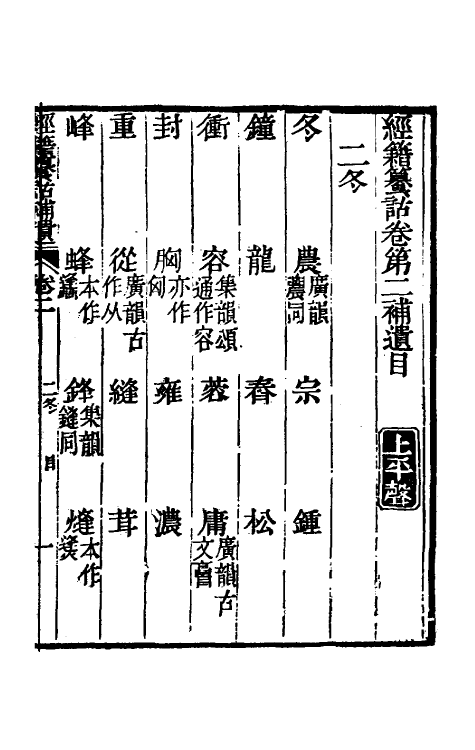 經籍籑詁卷第二補遺目 上平聲
二冬
冬 農廣韻農同 宗 鍾
鐘 龍 舂 松
衝 容集韻頌通作容 蓉 庸廣韻古文𩫏
封 胸亦作匈 雍 濃
重 從廣韻古作从 縫 茸
峰 蜂本作 鋒集韻鏠同 烽本作
經籍籑詁補遺 卷二 二冬 目 一